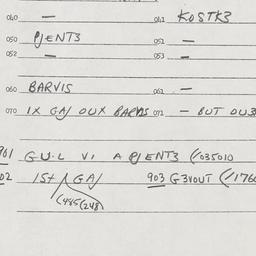 040 — 041 KOSTK3
050 PJENT3 051 —
052 — 053 —
060 BARVIS 061 —
070 1X GAJ OUX BARVIS 071 — BUT OU3
901 GU.L VI A PJENT3 (/035010
02 1St GAJ 903 G3VOUT (/1760
(485(248)